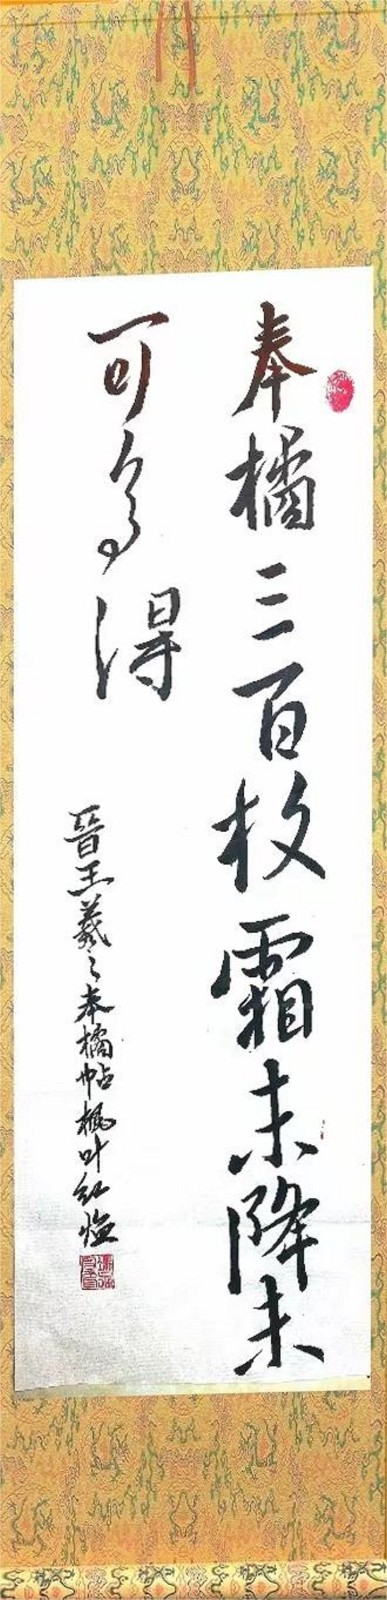 奉橘三百枚霜未降未
可多得
晉王羲之奉橘帖楓叶红